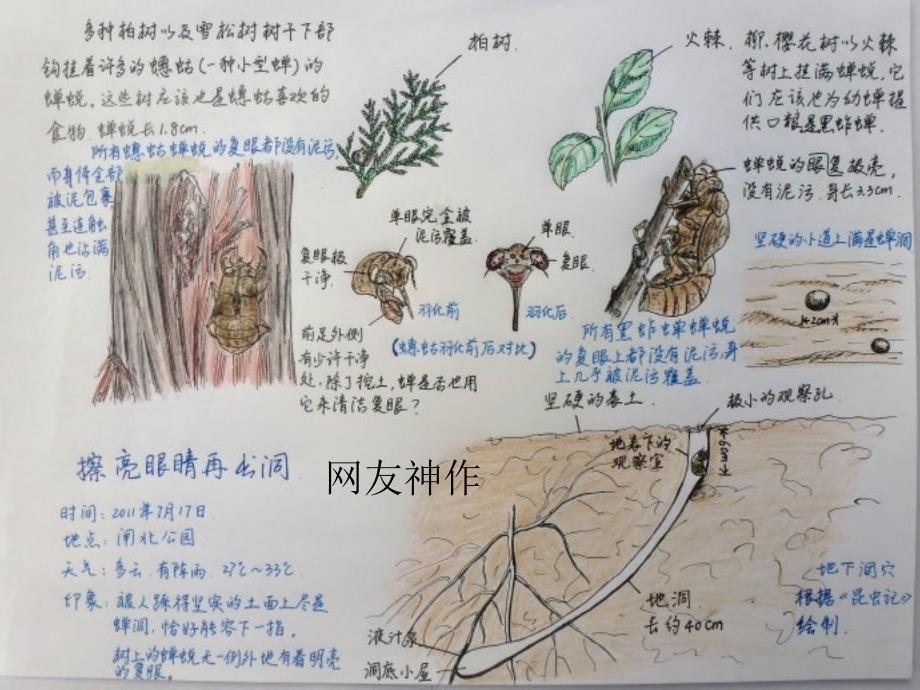 多种柏树以及雪松树树干下部
钩挂着许多的蟪蛄(一种小型蝉)的
蝉蜕。这些树应该也是蟪蛄喜欢的
食物.蝉蜕长1.8cm.
所有蟪蛄蝉蜕的复眼都没有泥污,
而身体全部
被泥包裹
甚至连触
角也沾满
泥污.
柏树.
火棘.
柳.樱花树以火棘
等树上挂满蝉蜕,它
们应该也为幼蝉提
供口粮是黑蚱蝉.
蝉蜕的眼
没有泥污.身长3.3cm.
坚硬的小道上满是蝉洞
2cm
单眼完全被
泥污覆盖.
复眼极
干净.
羽化前
单眼
复眼.
羽化后
(蟪蛄羽化前后对比)
前足外侧
有少许干净
处,除了挖土,蝉是否也用
它来清洁复眼?
所有黑蚱蝉蝉蜕
的复眼上都没有泥污,身
上几乎被泥污覆盖.
坚硬的表土.
极小的观察孔
地表下的
观察室
6cm
擦亮眼睛再出洞
网友神作
时间:2011年7月17日
地点:闸北公园
天气:多云.有阵雨.27℃~33℃
印象:被人踩得坚实的土面上尽是
蝉洞,恰好能容下一指。
树上的蝉蜕无一例外地有着明亮
的复眼。
地洞
长约40cm
液汁泉
洞底小屋
地下洞穴
根据《昆虫记》
绘制.